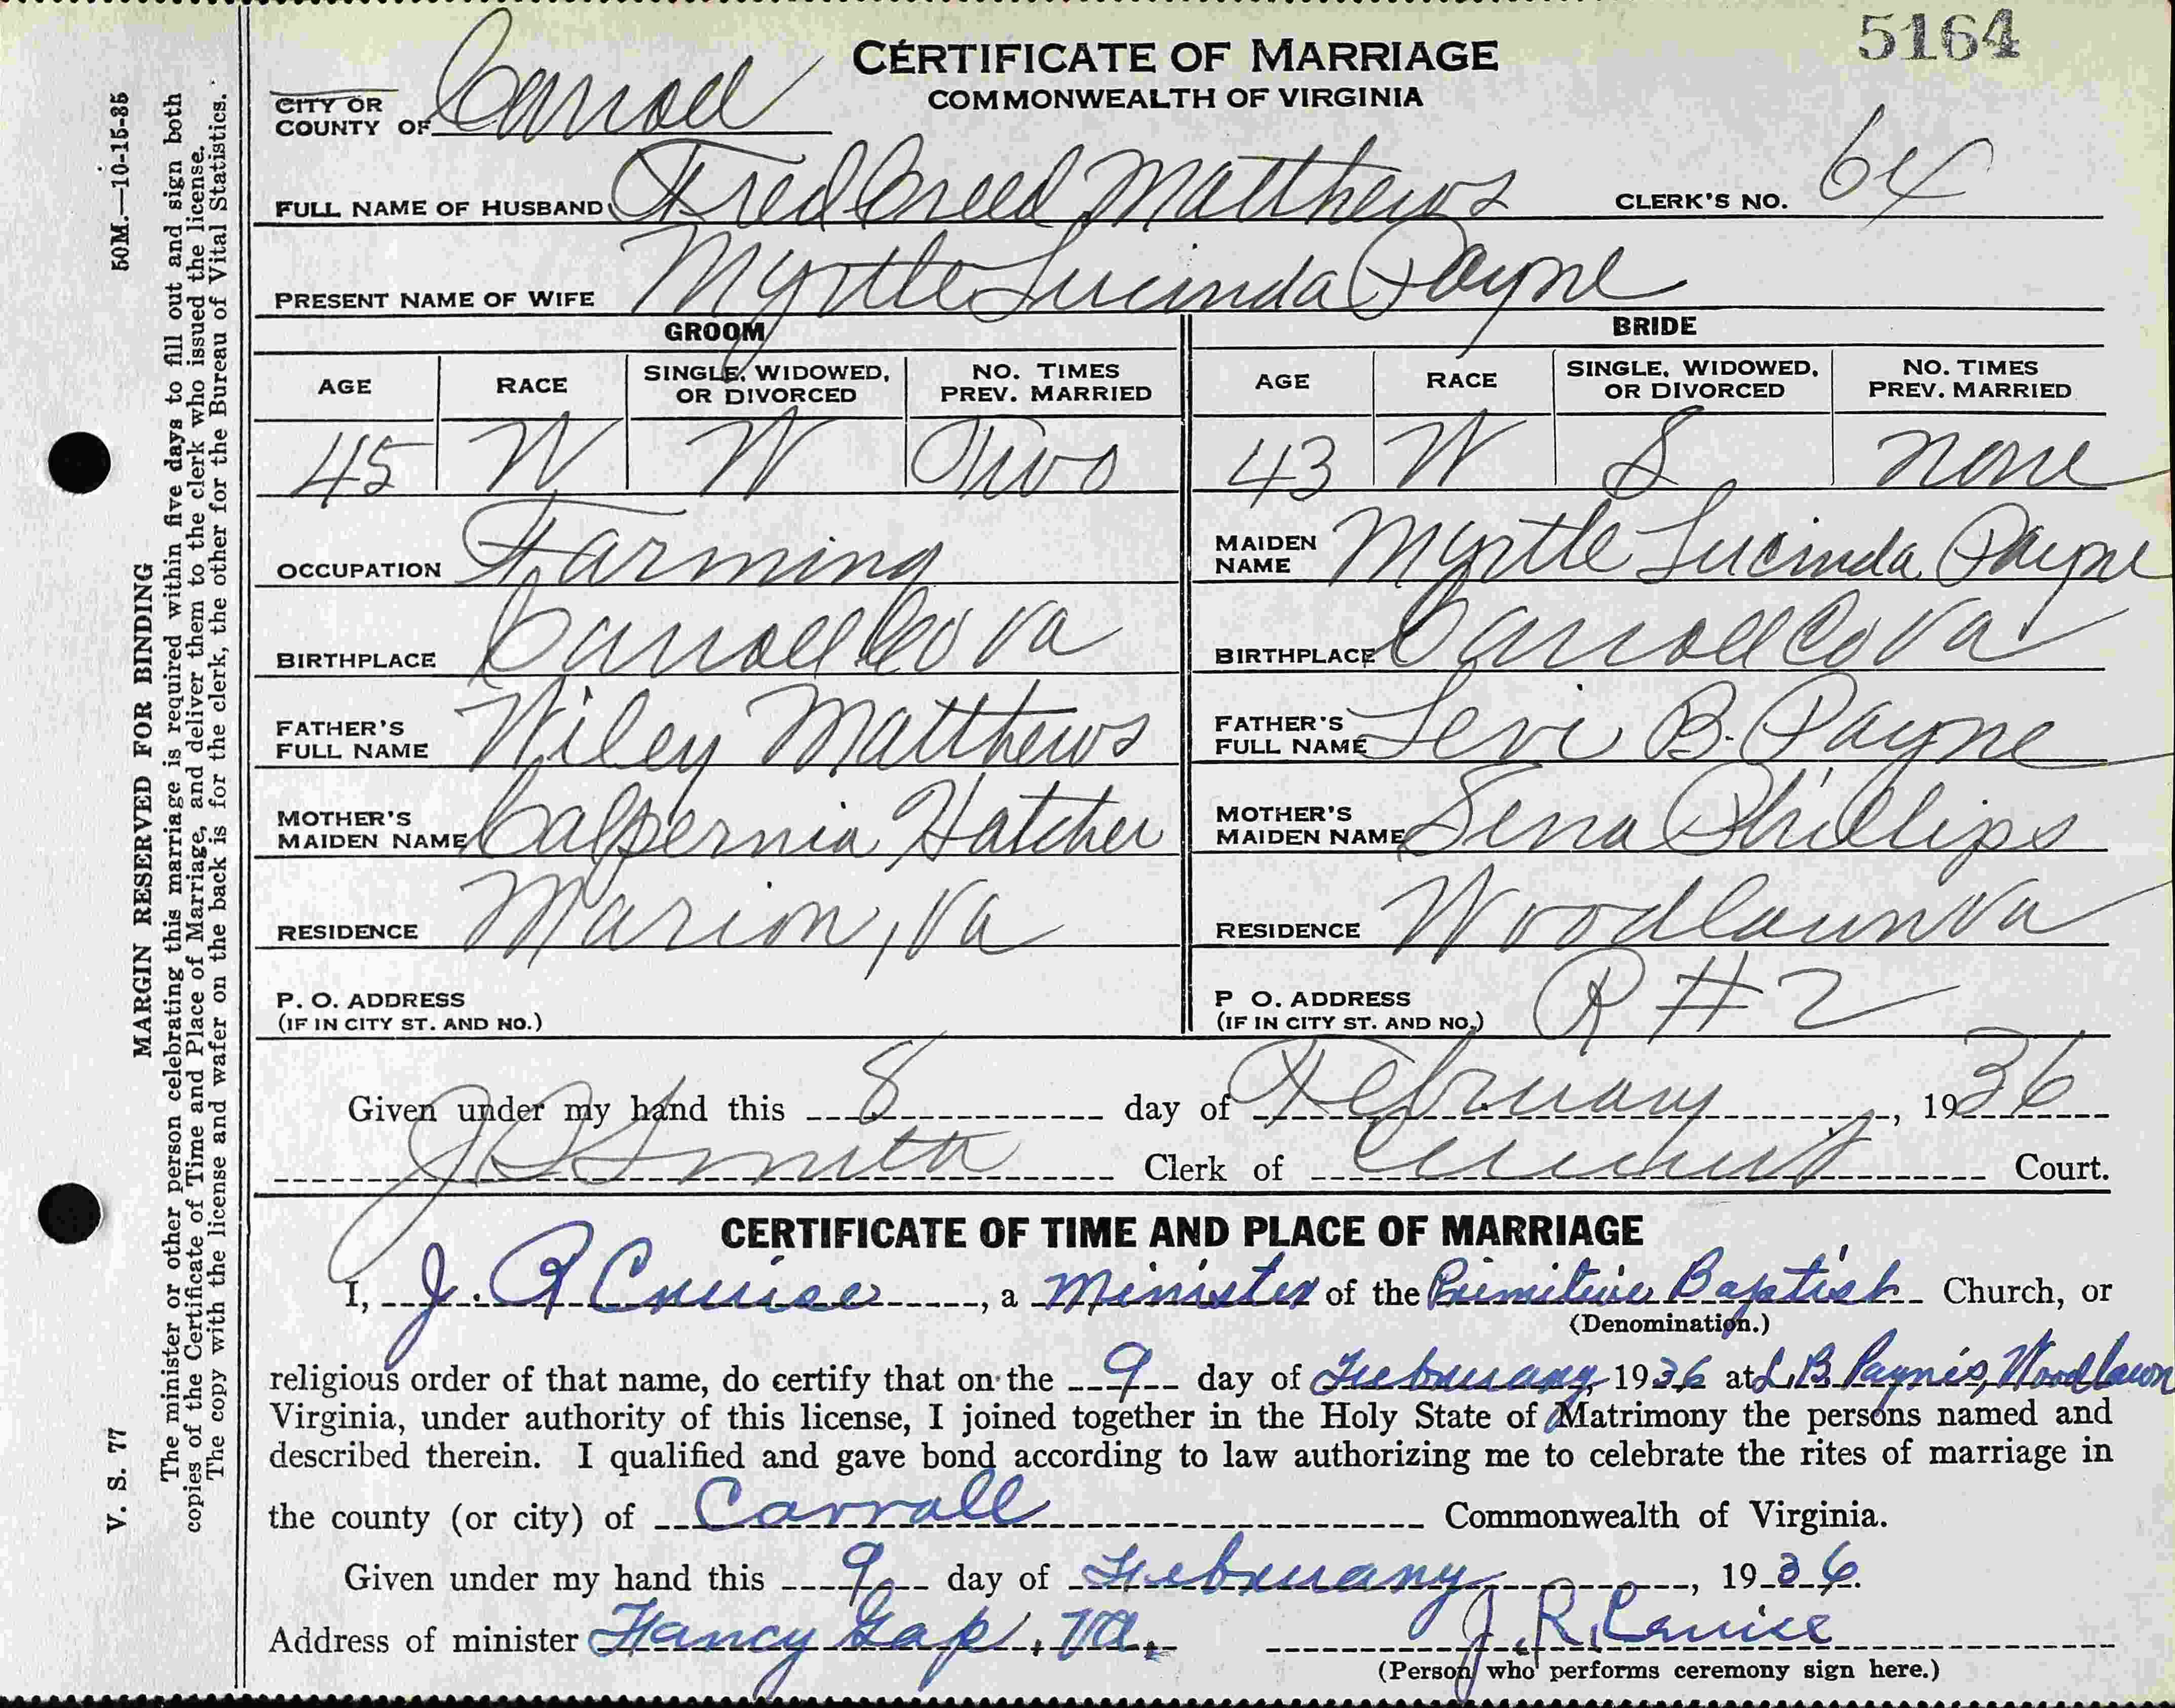 5164
CERTIFICATE OF MARRIAGE
COMMONWEALTH OF VIRGINIA
CITY OR
COUNTY OF Carroll
FULL NAME OF HUSBAND Fred Creed Matthews CLERK'S NO. 64
PRESENT NAME OF WIFE Myrtle Lucinda Payne
GROOM BRIDE
AGE RACE SINGLE, WIDOWED, OR DIVORCED NO. TIMES PREV. MARRIED AGE RACE SINGLE, WIDOWED, OR DIVORCED NO. TIMES PREV. MARRIED
45 W W Two 43 W S None
OCCUPATION Farming MAIDEN NAME Myrtle Lucinda Payne
BIRTHPLACE Carroll Co Va BIRTHPLACE Carroll Co Va
FATHER'S FULL NAME Wiley Matthews FATHER'S FULL NAME Levi B. Payne
MOTHER'S MAIDEN NAME Calpernia Hatcher MOTHER'S MAIDEN NAME Sena Phillips
RESIDENCE Marion, Va RESIDENCE Woodlawn Va
P. O. ADDRESS (IF IN CITY ST. AND NO.) P O. ADDRESS (IF IN CITY ST. AND NO.) R # 2
Given under my hand this 8 day of February, 1936
Smith Clerk of Circuit Court.
CERTIFICATE OF TIME AND PLACE OF MARRIAGE
I, J. R Cruise, a Minister of the Primitive Baptist Church, or
(Denomination.)
religious order of that name, do certify that on the 9 day of Febuuary 1936 at L. B. Payne's, Woodlawn
Virginia, under authority of this license, I joined together in the Holy State of Matrimony the persons named and
described therein. I qualified and gave bond according to law authorizing me to celebrate the rites of marriage in
the county (or city) of Carroll Commonwealth of Virginia.
Given under my hand this 9 day of Febuuary, 1936.
Address of minister Fancy Gap, Va. J. R. Cruise
(Person who performs ceremony sign here.)
V. S. 77 50M.—10-15-35
MARGIN RESERVED FOR BINDING
The minister or other person celebrating this marriage is required within five days to fill out and sign both
copies of the Certificate of Time and Place of Marriage, and deliver them to the clerk who issued the license.
The copy with the license and wafer on the back is for the clerk, the other for the Bureau of Vital Statistics.